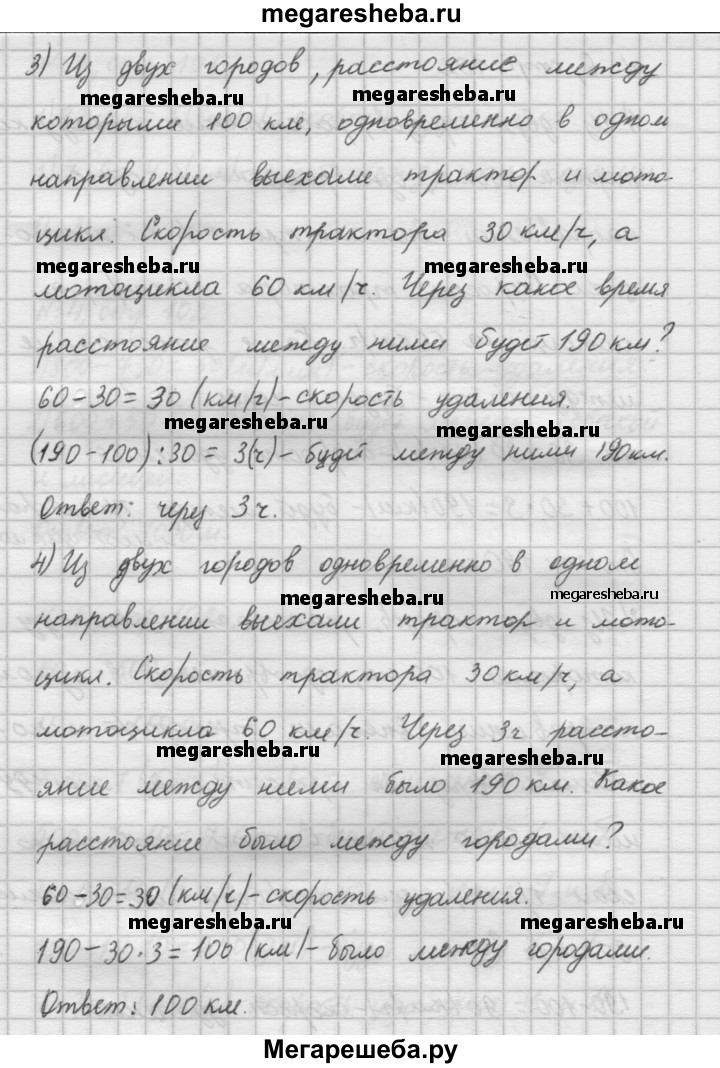 megaresheba.ru
3) Из двух городов, расстояние между
megaresheba.ru megaresheba.ru
которыми 100 км, одновременно в одном
направлении выехали трактор и мото-
цикл. Скорость трактора 30 км/ч, а
megaresheba.ru megaresheba.ru
мотоцикла 60 км/ч. Через какое время
расстояние между ними будет 190 км?
60-30=30 (км/ч)-скорость удаления.
megaresheba.ru megaresheba.ru
(190-100):30=3(ч)-будет между ними 190км.
Ответ: через 3ч.
4) Из двух городов одновременно в одном
megaresheba.ru megaresheba.ru
направлении выехали трактор и мото-
цикл. Скорость трактора 30км/ч, а
мотоцикла 60 км/ч. Через 3ч рассто-
megaresheba.ru megaresheba.ru
яние между ними было 190 км. Какое
расстояние было между городами?
60-30=30 (км/ч)-скорость удаления.
megaresheba.ru megaresheba.ru
190-30·3=100 (км)-было между городами.
Ответ: 100 км.
Мегарешеба.ру